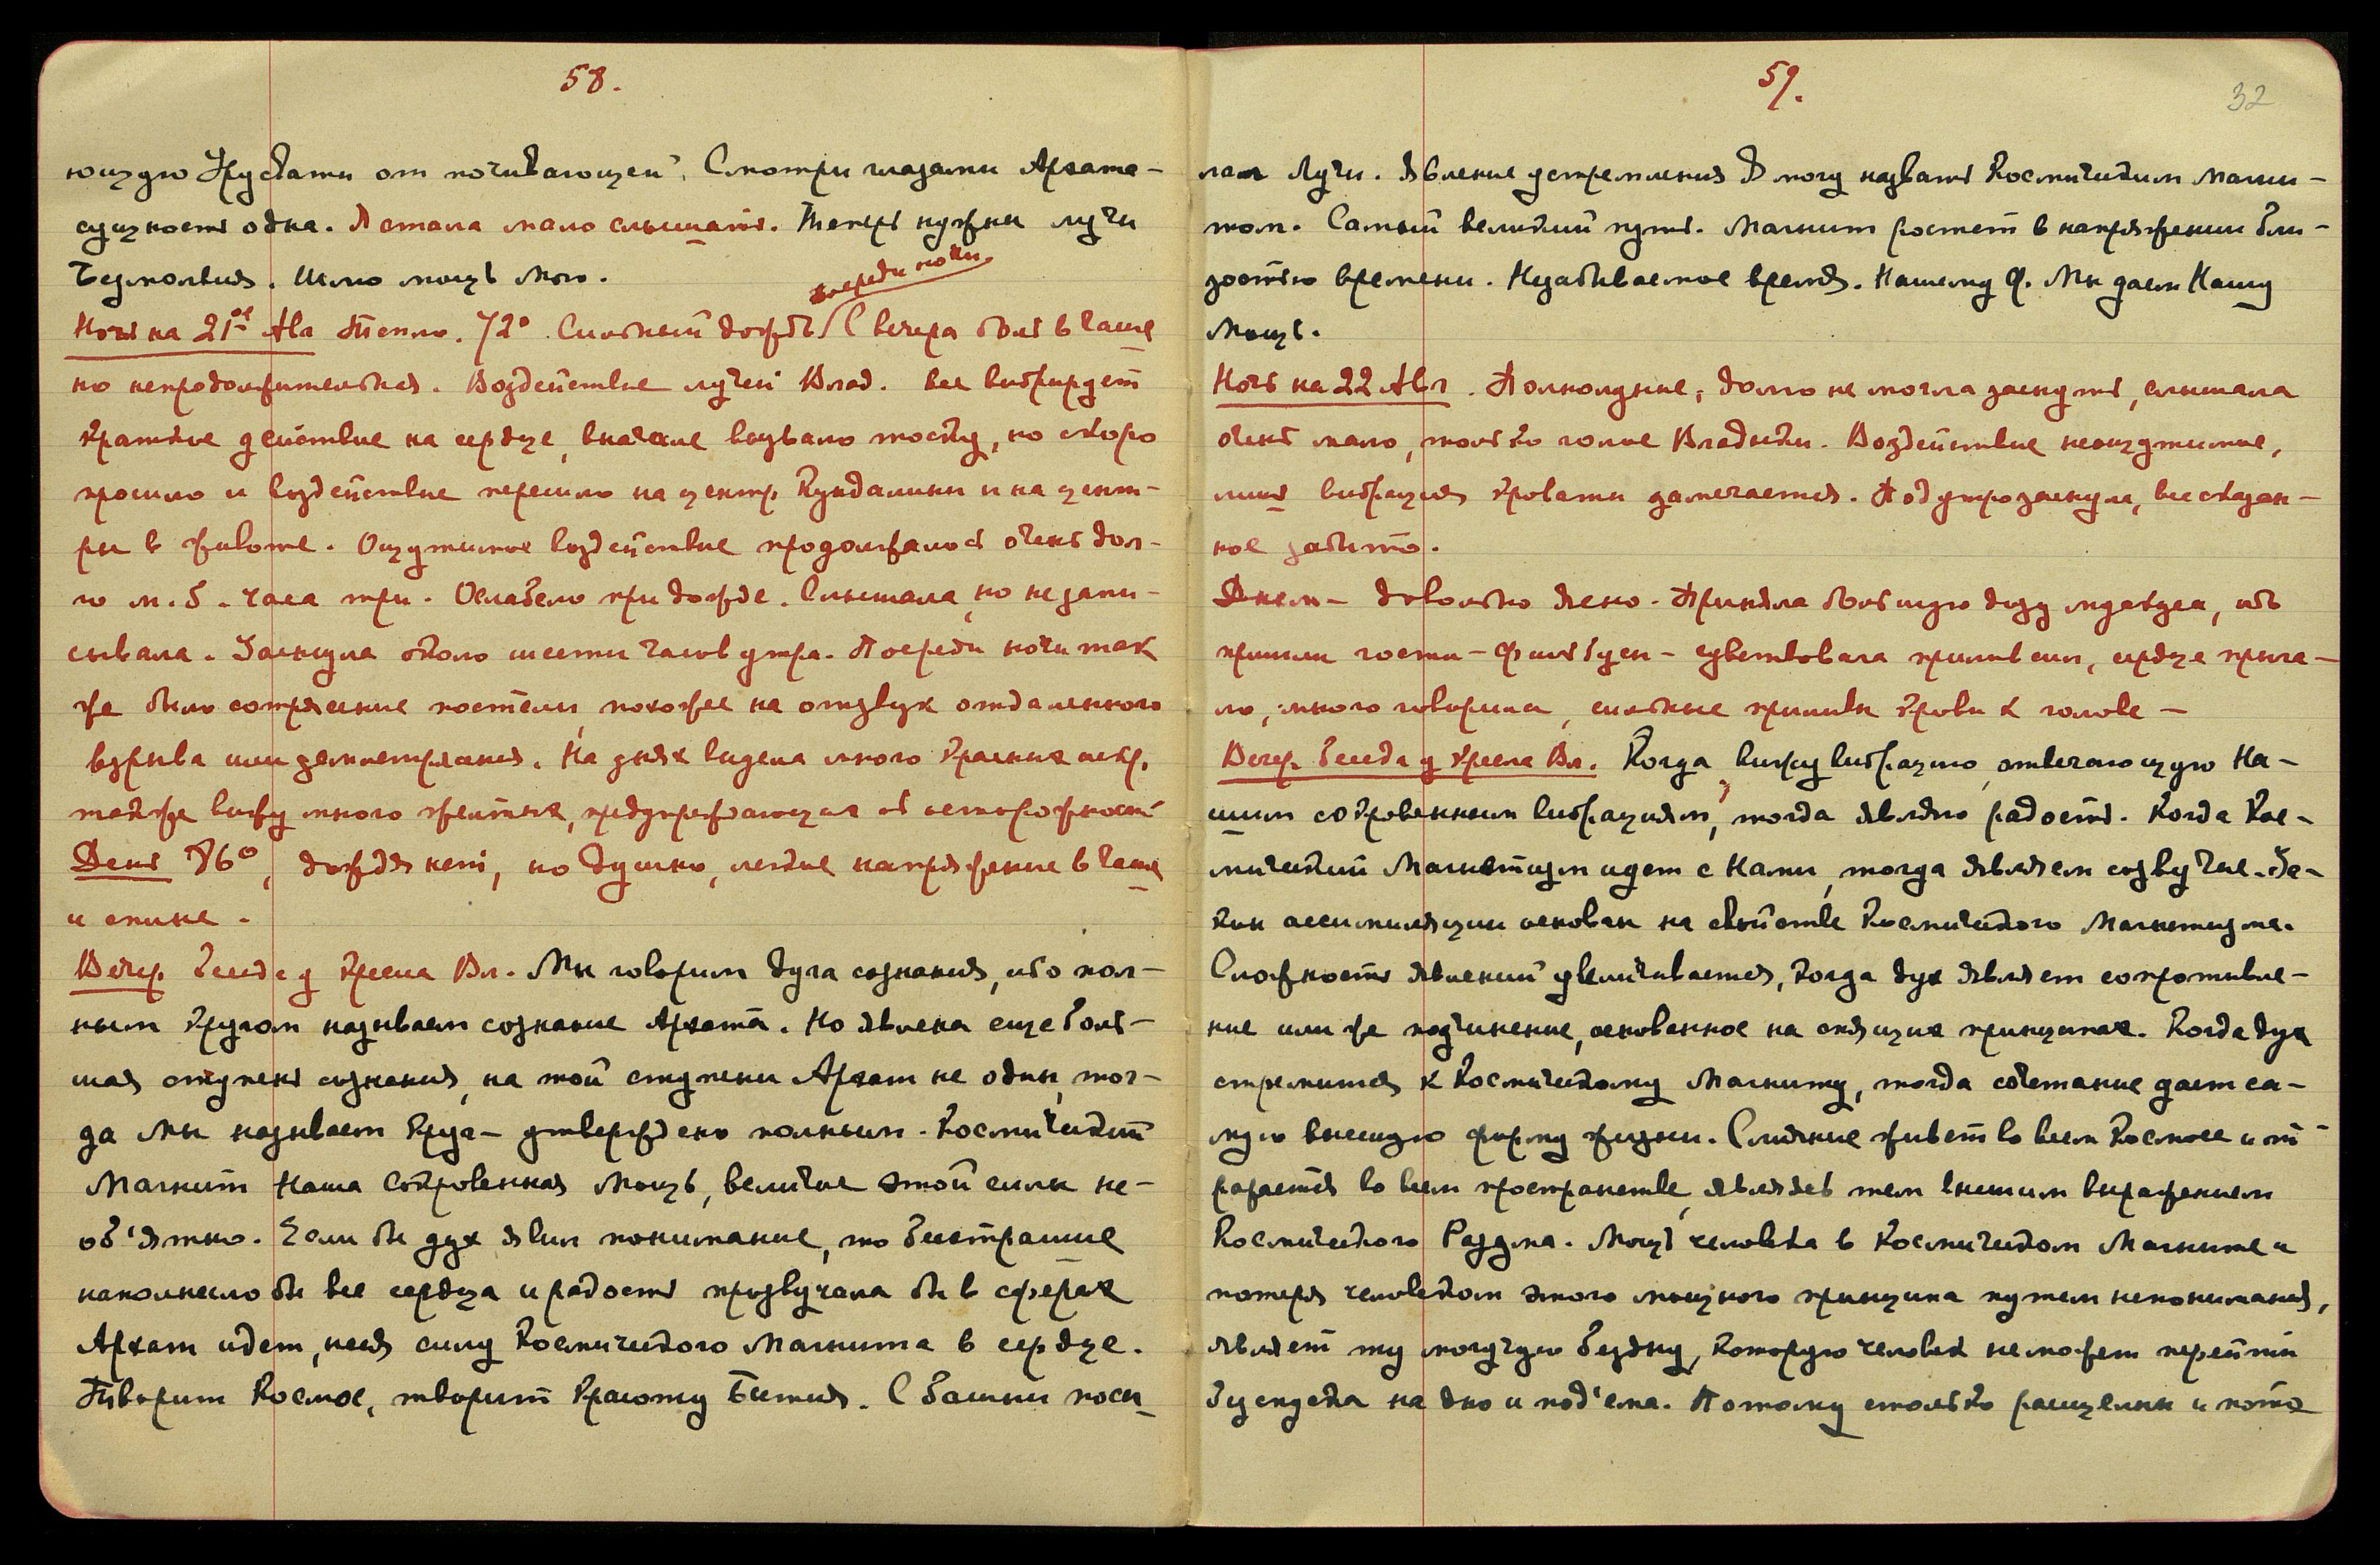 58.
ющую Урусвати от почивающей. Смотри глазами Архата –
сущность одна. Я стала мало слышать. Теперь нужны лучи
Безмолвия. Шлю мощь мою.
посреди ночи
Ночь на 21ое Авг Тепло. 72° Сильный дождь С вечера боль в Чаше
но непродолжительная. Воздействие лучей Влад. все вибрирует
краткое действие на сердце, вначале вызвало тоску, но скоро
прошло и воздействие перешло на центр Кундалини и на цент-
ры в животе. Ощутимое воздействие продолжалось очень дол-
го м. б. часа три. Ослабело при дожде. Слышала, но не запи-
сывала. Заснула около шести часов утра. Посреди ночи так
же было сотрясение постели, похожее на отзвук отдаленного
взрыва или землетрясения. На днях видела много красных искр,
также вижу много желтых, предупреждающих об осторожности
День 76°, дождя нет, но душно, легкое напряжение в Чаше
и спине.
Вечер. Беседа у кресла Вл. Мы говорим дуга сознания, ибо пол-
ным кругом называем сознание Архата. Но явлена еще боль-
шая ступень сознания, на той ступени Архат не один, тог-
да мы называем Круг – утверждено полным. Космический
Магнит Наша Сокровенная Мощь, величие этой силы не-
об'ятно. Если бы дух явил понимание, то бесстрашие
наполнило бы все сердца и радость прозвучала бы в сферах
Архат идет, неся силу Космического Магнита в сердце.
Творит Космос, творит Красоту Бытия. С башни посы-
59.
32
лаем Лучи. Явление устремления Я могу назвать Космическим Магни-
том. Самый великий путь. Магнит растет в напряжении бли-
зостью времени. Незабываемое время. Нашему Ф. Мы даем Нашу
Мощь.
Ночь на 22 Авг. Полнолуние, долго не могла заснуть, слышала
очень мало, только голос Владыки. Воздействие неощутимое,
лишь вибрация кровати замечается. Под утро заснула, все сказан-
ное забыто.
Днем – довольно ясно. Приняла большую дозу мускуса, ибо
пришли гости – – чувствовала прилив сил, сердце прыга-
ло, много говорила, сильные приливы крови к голове –
Вечер. Беседа у кресла Вл. Когда вижу вибрацию, отвечающую На-
шим сокровенным вибрациям, тогда являю радость. Когда Кос-
мический Магнетизм идет с Нами, тогда являем созвучие. За-
кон ассимиляции основан на свойстве Космического Магнетизма.
Сложность явлений увеличивается, когда дух являет сопротивле-
ние или же подчинение, основанное на спящих принципах. Когда дух
стремится к Космическому Магниту, тогда сочетание дает са-
мую высшую форму жизни. Слияние живет во всем Космосе и от-
ражается во всем пространстве, являясь тем высшим выражением
Космического Разума. Мощь человека в Космическом Магните и
потеря человеком этого мощного принципа путем непонимания,
являет ту могучую бездну, которую человек не может перейти
без спуска на дно и под'ема. Потому столько расщелин и пото